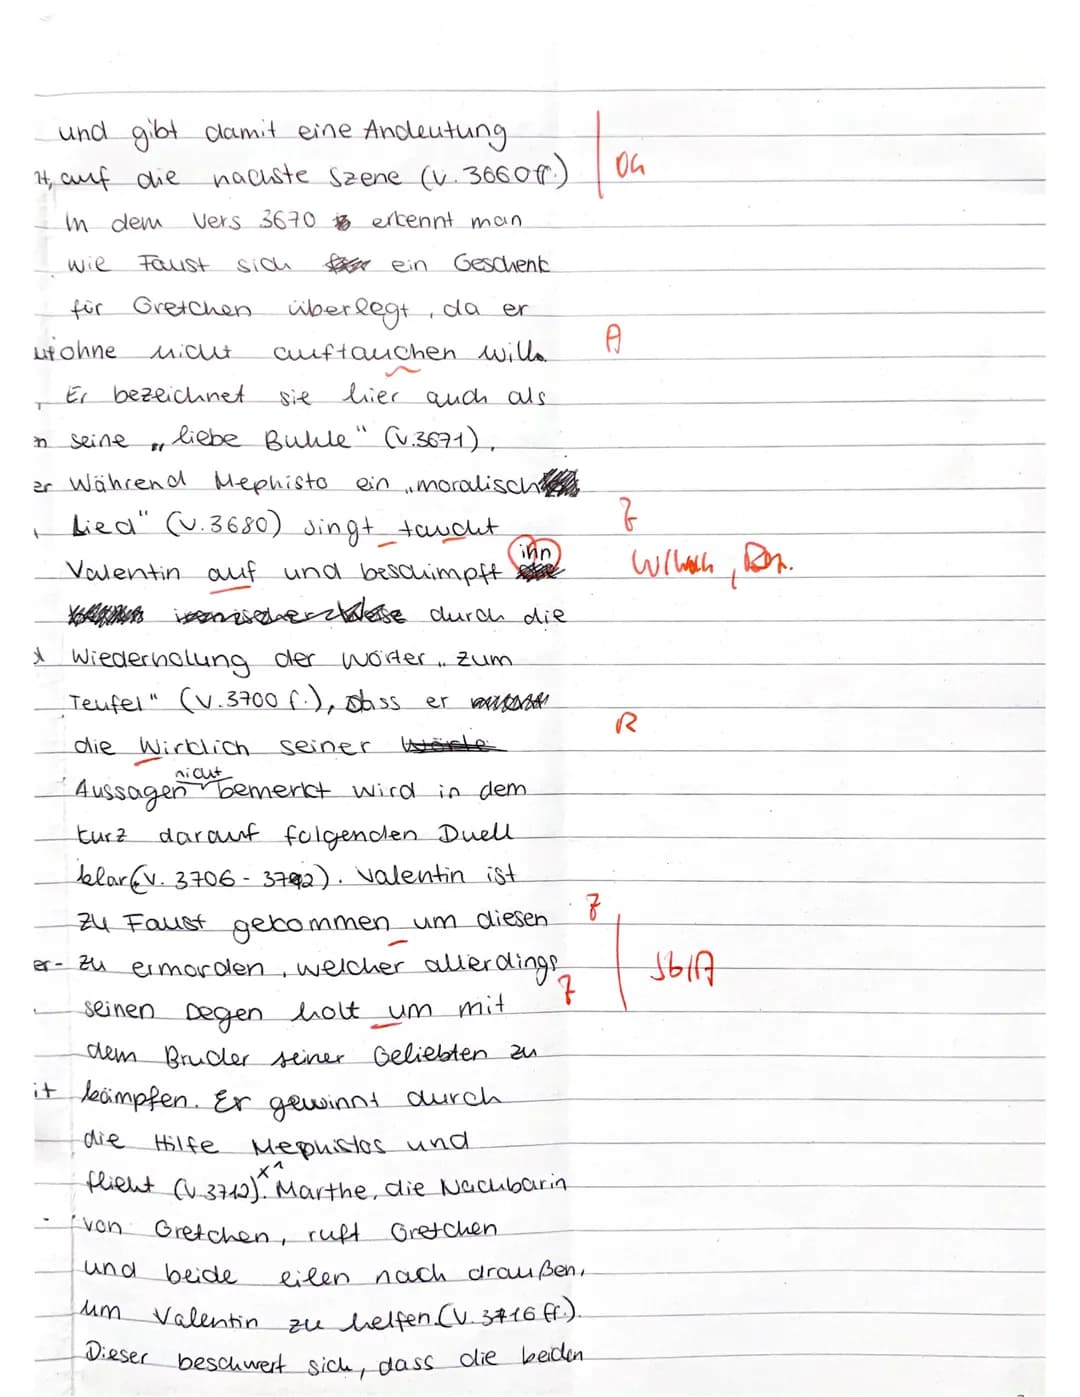 und gibt damit eine Andeutung
auf die nächste Szene (V. 3660ff.) DG
In dem Vers 3670 erkennt man
wie Faust sich ein Geschenk
für Gretchen überlegt, da er
ohne nicht auftauchen will. A
Er bezeichnet sie hier auch als
n seine „liebe Buhle" (V.3671).
er Während Mephisto ein „moralisch
Lied" (V.3680) singt taucht Z
Valentin auf und beschimpft ihn
durch die
Wiederholung der Wörter „zum
Teufel" (V.3700 f.), dass er
die Wirklich seiner R
Aussagen nicht bemerkt wird in dem
kurz darauf folgenden Duell
klar (V. 3706 - 3712). Valentin ist
zu Faust gekommen um diesen Z
er- zu ermorden, welcher allerdings Sb/A
seinen Degen holt um mit Z
dem Bruder seiner Geliebten zu
it kämpfen. Er gewinnt durch
die Hilfe Mephistos und
flieht (V.3712). x1 Marthe, die Nachbarin
von Gretchen, ruft Gretchen
und beide eilen nach draußen,
um Valentin zu helfen (V. 3716 ff.).
Dieser beschwert sich, dass die beiden